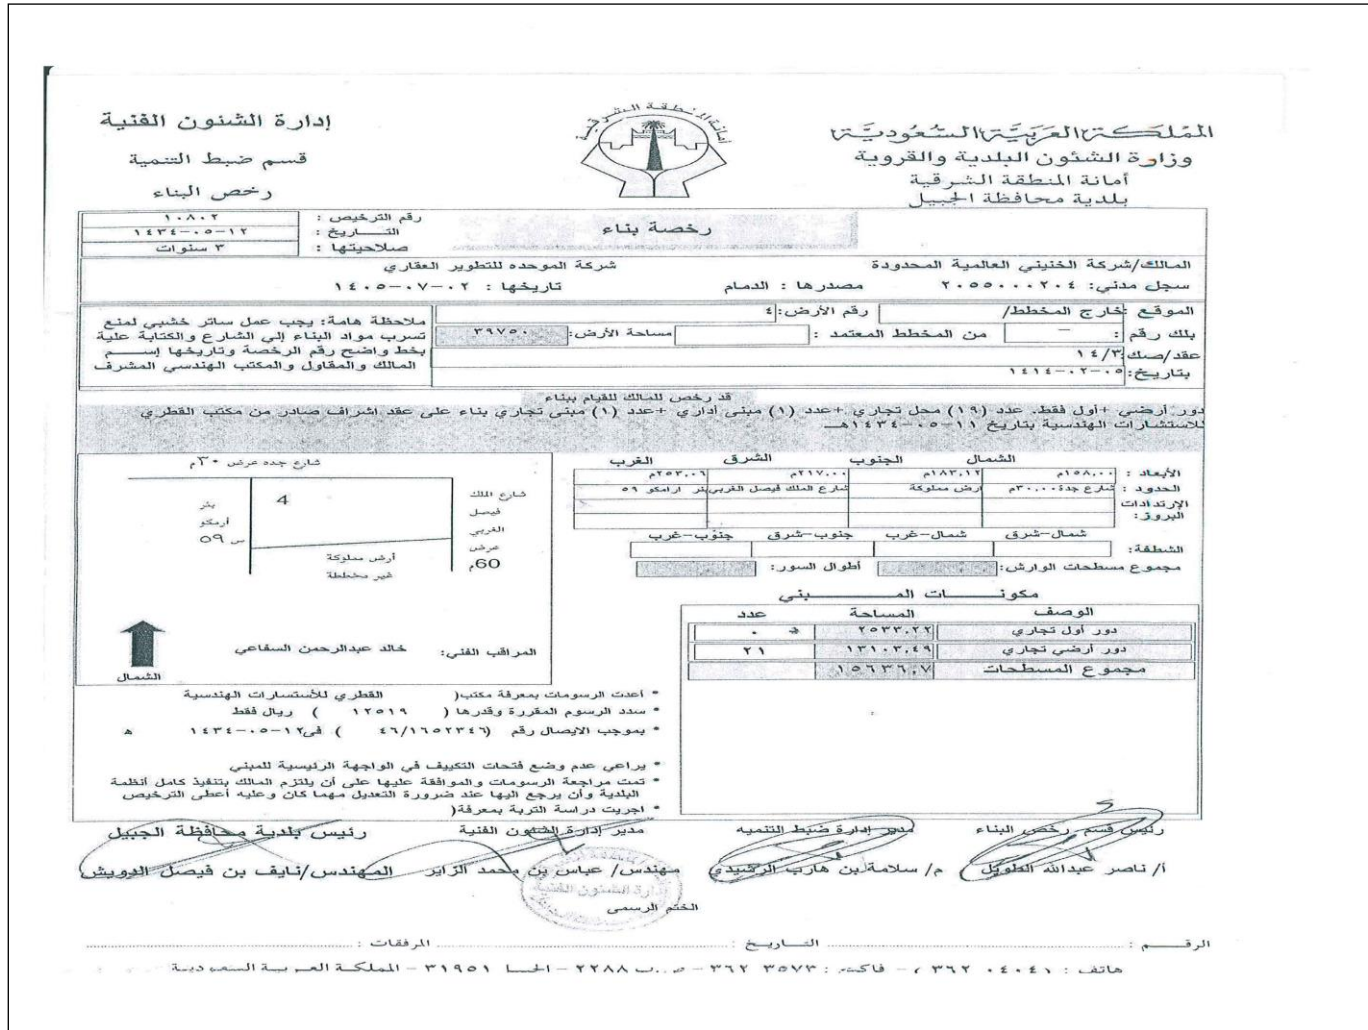 المملكة العربية السعودية
وزارة الشئون البلدية والقروية
أمانة المنطقة الشرقية
بلدية محافظة الجبيل
أمانة المنطقة الشرقية
إدارة الشئون الفنية
قسم ضبط التنمية
رخص البناء
رخصة بناء
رقم الترخيص : ١٠٨٠٢
التـــاريخ : ١٢-٠٥-١٤٣٤
صلاحيتها : ٣ سنوات
المالك/شركة الخنيني العالمية المحدودة شركة الموحده للتطوير العقاري
سجل مدني: ٢٠٥٥٠٠٠٢٠٤ مصدرها : الدمام تاريخها : ٠٢-٠٧-١٤٠٥
الموقع :خارج المخطط/ رقم الأرض:٤
بلك رقم : — من المخطط المعتمد : مساحة الأرض: ٣٩٧٥٠
عقد/صك:١٤/٣
بتاريخ:٠٥-٠٢-١٤١٤
ملاحظة هامة: يجب عمل ساتر خشبي لمنع
تسرب مواد البناء إلي الشارع والكتابة علية
بخط واضح رقم الرخصة وتاريخها إســـم
المالك والمقاول والمكتب الهندسي المشرف
قد رخص للمالك للقيام ببناء
دور أرضي +أول فقط. عدد (١٩) محل تجاري .+عدد (١) مبنى أداري +عدد (١) مبنى تجاري بناء على عقد اشراف صادر من مكتب القطري
للاستشارات الهندسية بتاريخ ١١-٠٥-١٤٣٤هـ
الشمال الجنوب الشرق الغرب
الأبعاد : ١٥٨,٠٠م ١٨٣,١٢م ٢١٧,٠٠م ٢٥٣,٠٦م
الحدود : شارع جدة٣٠,٠٠م ارض مملوكة شارع الملك فيصل الغربي بئر ارامكو ٥٩
الإرتدادات
البروز:
شمال-شرق شمال-غرب جنوب-شرق جنوب-غرب
الشطفة:
مجموع مسطحات الوارش: أطوال السور:
شارع جده عرض ٣٠م
4
شارع الملك
فيصل
الغربي
عرض
60م
بئر
أرمكو
س ٥٩
أرض مملوكة
غير مخططة
الشمال
المراقب الفني: خالد عبدالرحمن السفاعي
مكونـــــات المـــــــبني
الوصف المساحة عدد
دور أول تجاري ٢٥٣٣,٢٢ ٠
دور أرضي تجاري ١٣١٠٣,٤٩ ٢١
مجموع المسطحات ١٥٦٣٦,٧
* أعدت الرسومات بمعرفة مكتب( القطري للأستسارات الهندسية
* سدد الرسوم المقررة وقدرها ( ١٢٥١٩ ) ريال فقط
* بموجب الايصال رقم (٤٦/١٦٥٢٣٤٦ ) في١٢-٠٥-١٤٣٤ ه
* يراعي عدم وضع فتحات التكييف في الواجهة الرئيسية للمبني
* تمت مراجعة الرسومات والموافقة عليها على أن يلتزم المالك بتنفيذ كامل أنظمة
البلدية وأن يرجع اليها عند ضرورة التعديل مهما كان وعليه أعطى الترخيص
* اجريت دراسة التربة بمعرفة(
رئيس قسم رخص البناء مدير إدارة ضبط التنميه مدير إدارة الشئون الفنية رئيس بلدية محافظة الجبيل
أ/ ناصر عبدالله الطويل م/ سلامة بن هارب الرشيدي مهندس/ عباس بن محمد الزاير المهندس/نايف بن فيصل الدويش
إدارة الشئون الفنية
الختم الرسمى
الرقـــم : التـــاريـخ : المرفقات :
هاتف : ٣٦٢ ٠٤٠٤١ - فاكس : ٣٥٧٣ ٣٦٢ - ص.ب ٢٢٨٨ - ٣١٩٥١ - المملكة العربية السعودية